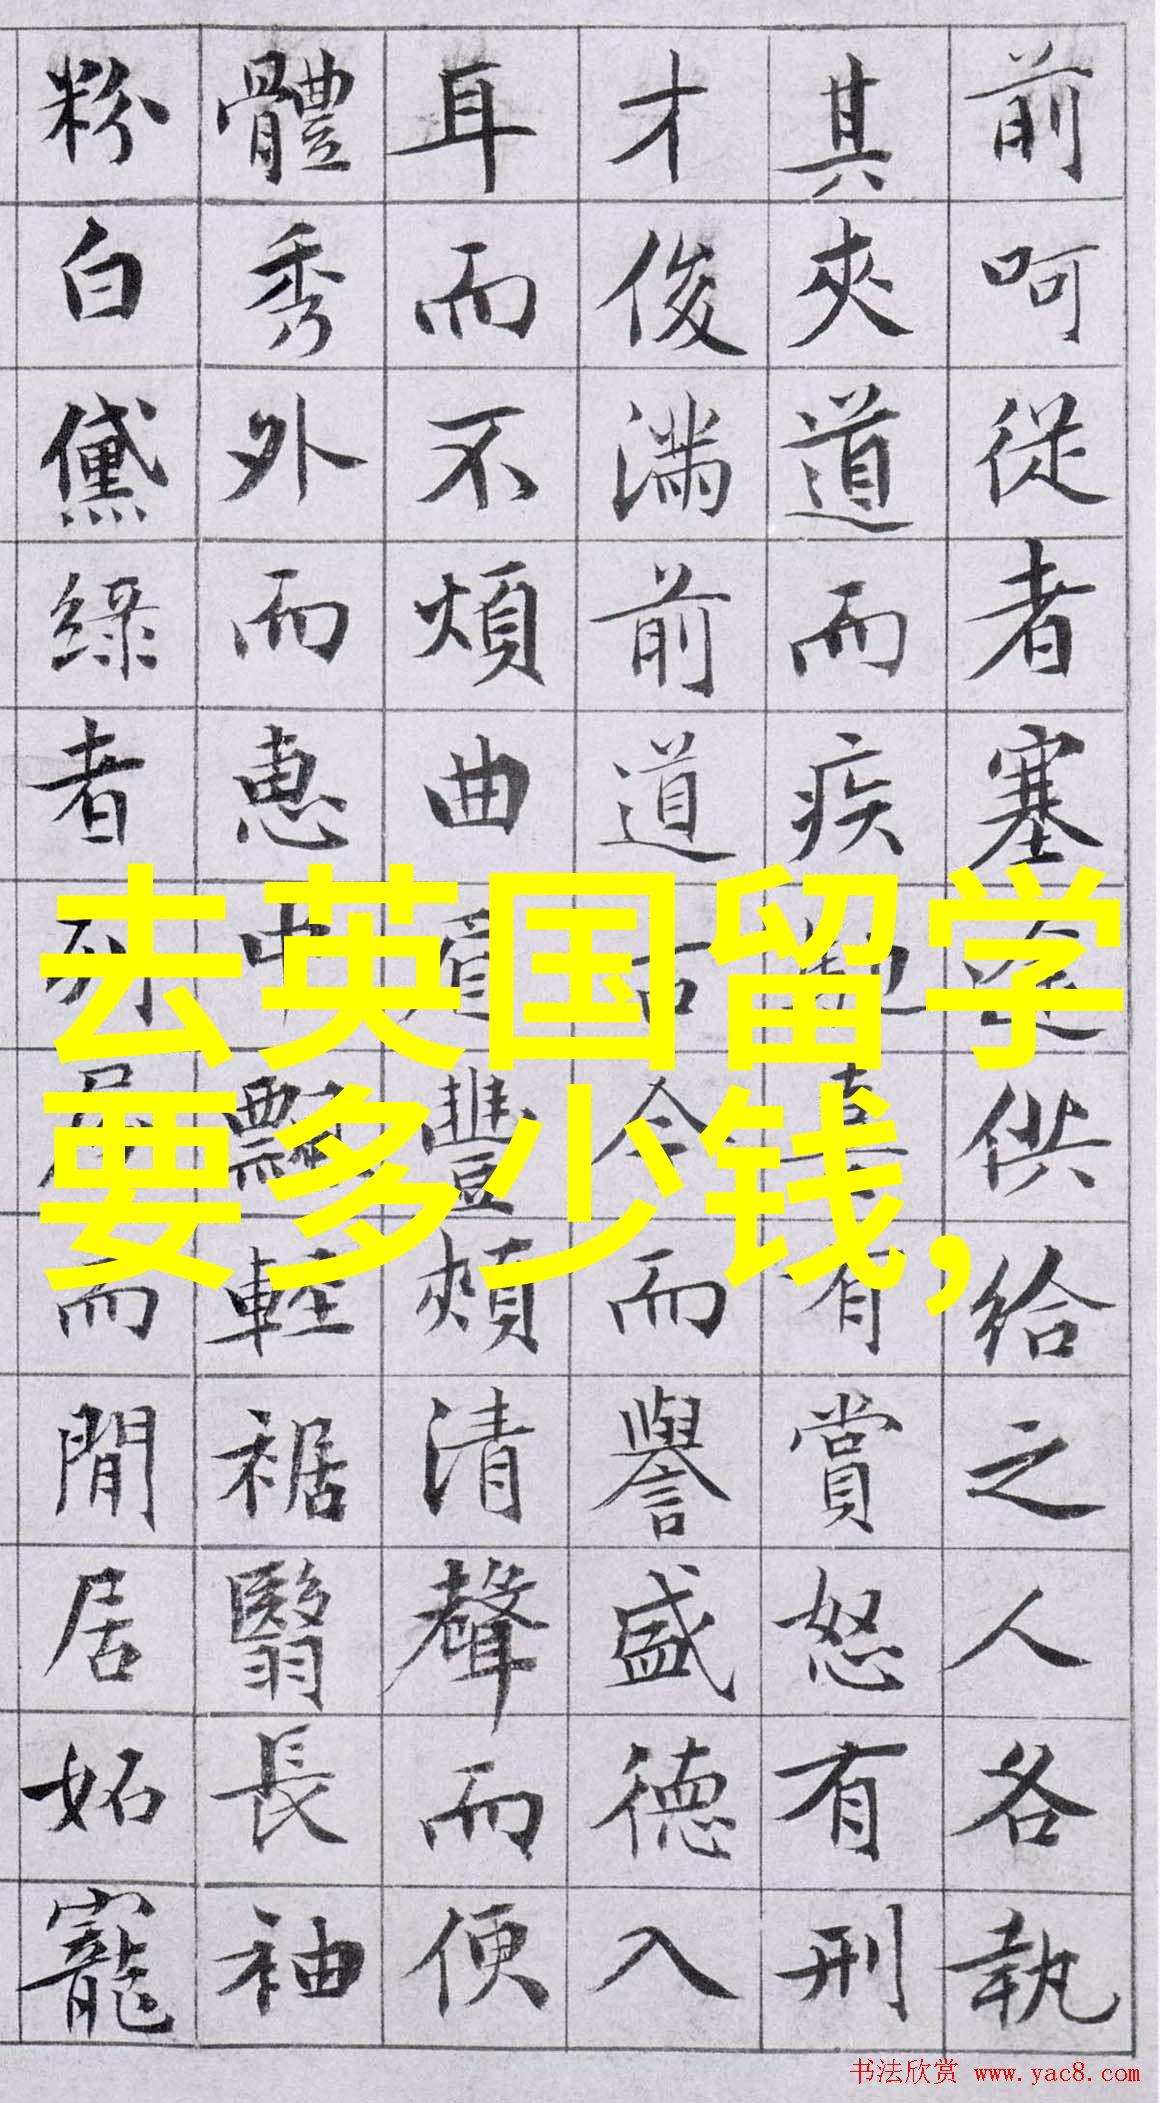 前呵從者塞途供給之人各執
其夾道而疾馳喜有賞怒有刑
才俊滿前道古今而譽盛德入
耳而不煩曲眉豐頰清聲而便
體秀外而惠中飄輕裾翳長袖
粉白黛綠者列屋而閒居妬寵
去英国留学
要多少钱,
书法欣赏 www.yac8.com